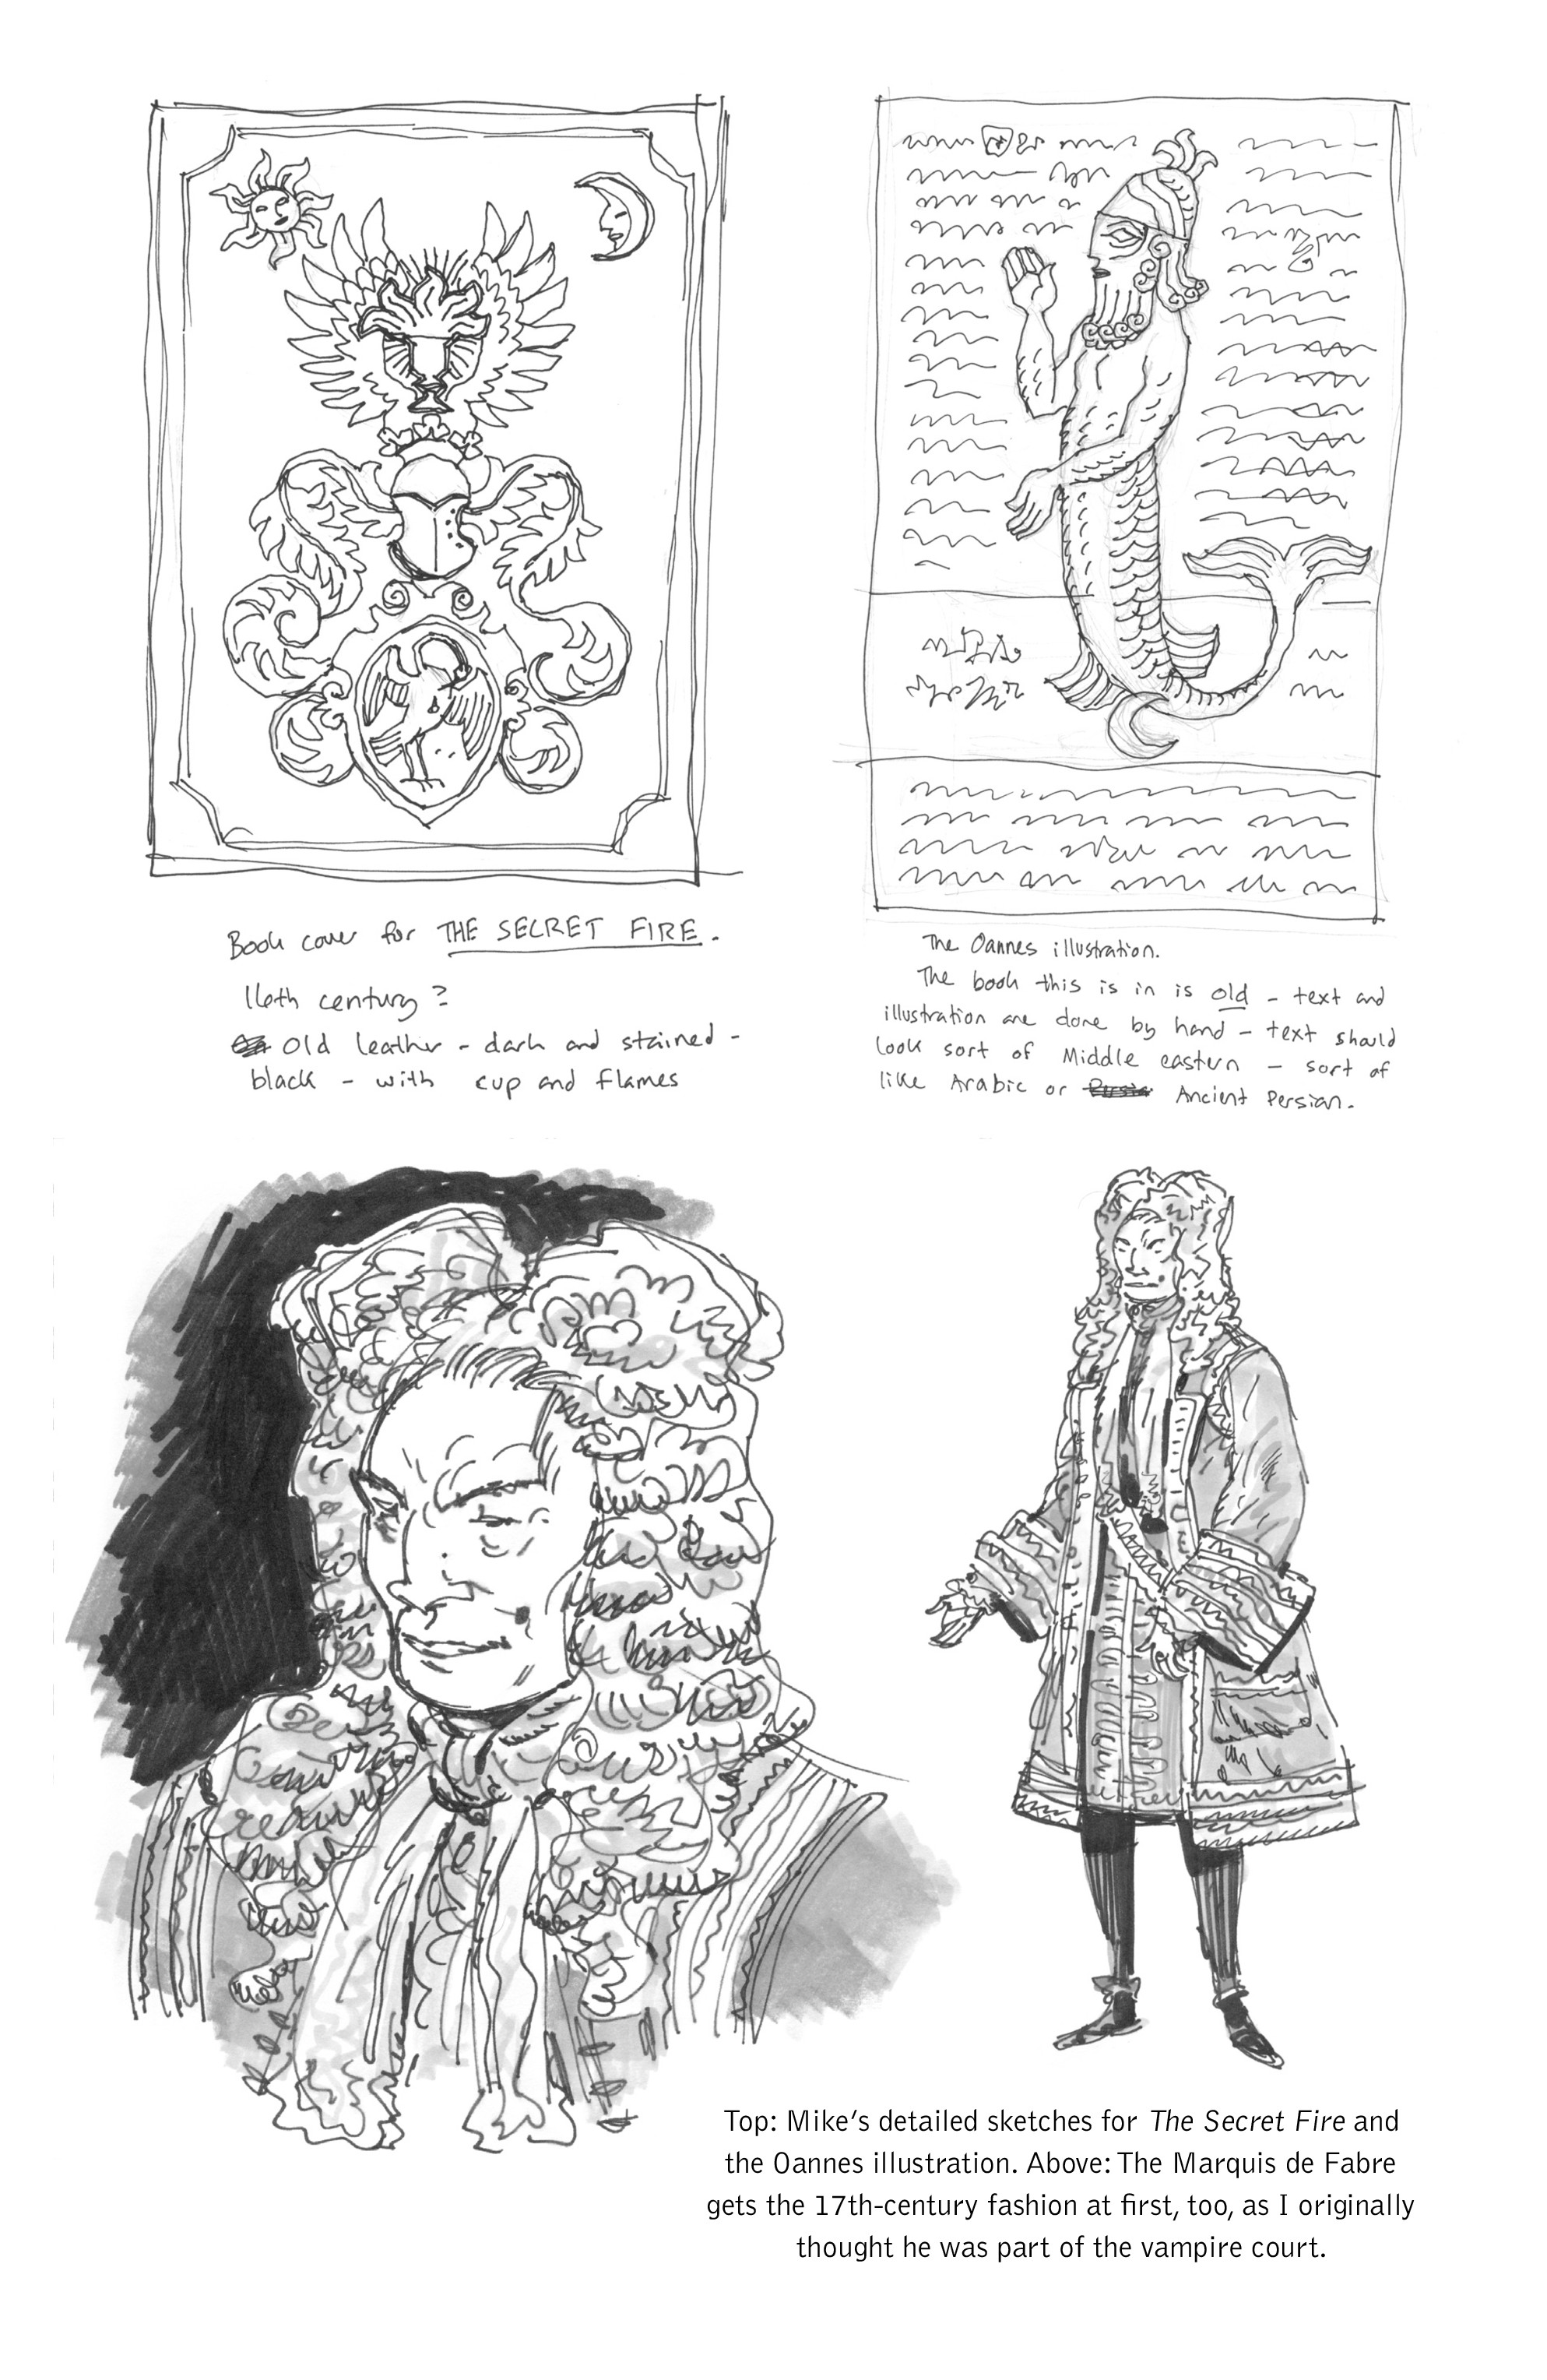 Book cover for THE SECRET FIRE.
16th century?
Old leather - dark and stained -
black - with cup and flames
The Oannes illustration.
The book this is in is old - text and
illustration are done by hand - text should
look sort of Middle eastern - sort of
like Arabic or Ancient Persian.
Top: Mike's detailed sketches for The Secret Fire and
the Oannes illustration. Above: The Marquis de Fabre
gets the 17th-century fashion at first, too, as I originally
thought he was part of the vampire court.